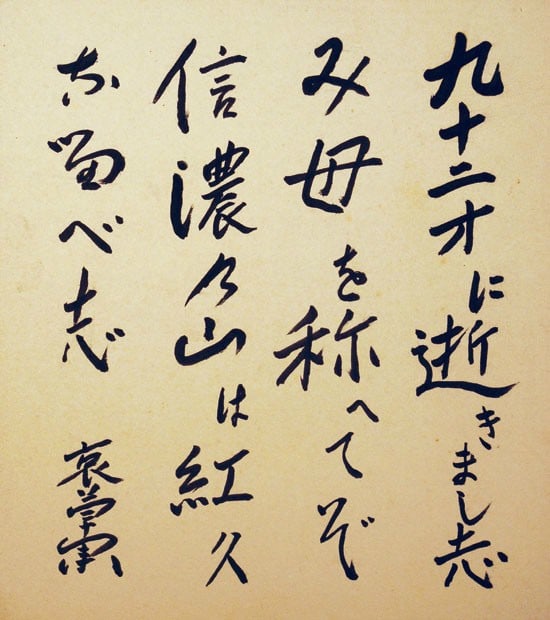 九十二才に逝きまし志
み母を称へてぞ
信濃乃山は紅久
な留べ志
哀草果